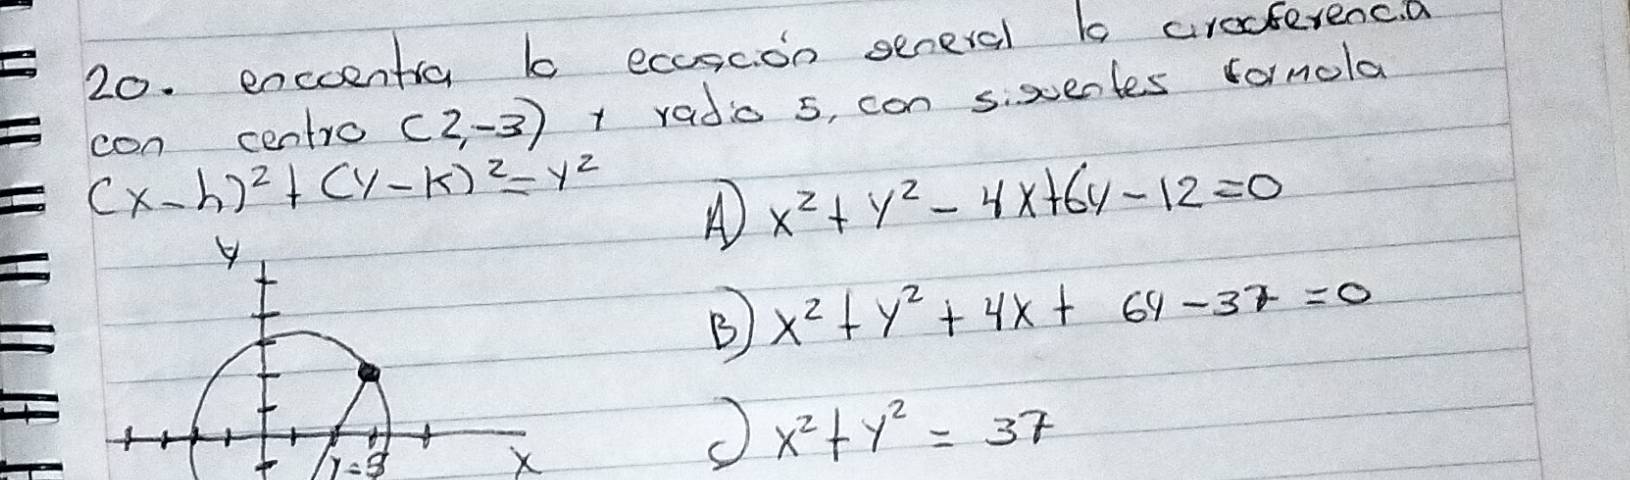 20. encuentra la ecuación general la circuferencia
con centro (2,-3) y radio 5, con siguentes formula
(x-h)²+(y-k)²=y²
A) x²+y²-4x+6y-12=0
y
B) x²+y²+4x+ 6y-37=0
C) x²+y²=37
r=5
x